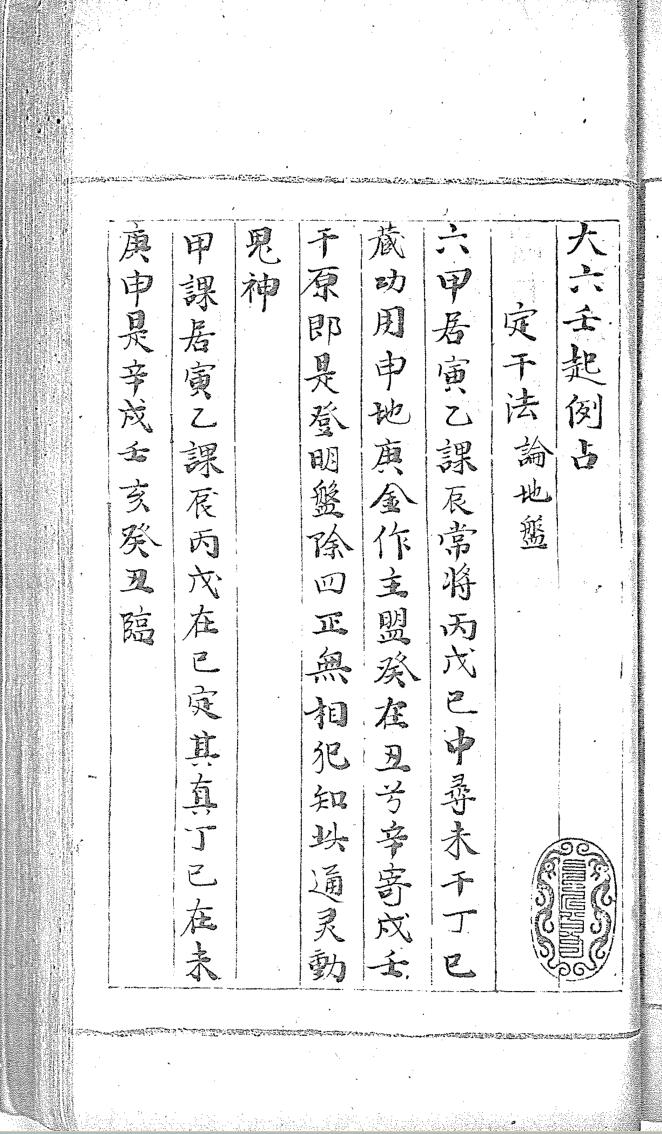 大六壬起例占
定干法論地盤
六甲居寅乙課辰常將丙戊巳中尋未干丁己
藏功用申地庚金作主盟癸在丑兮辛寄戌壬
干原即是登明盤除四正無相犯知此通灵動
鬼神
甲課居寅乙課辰丙戊在巳定其真丁己在未
庚申是辛戌壬亥癸丑臨